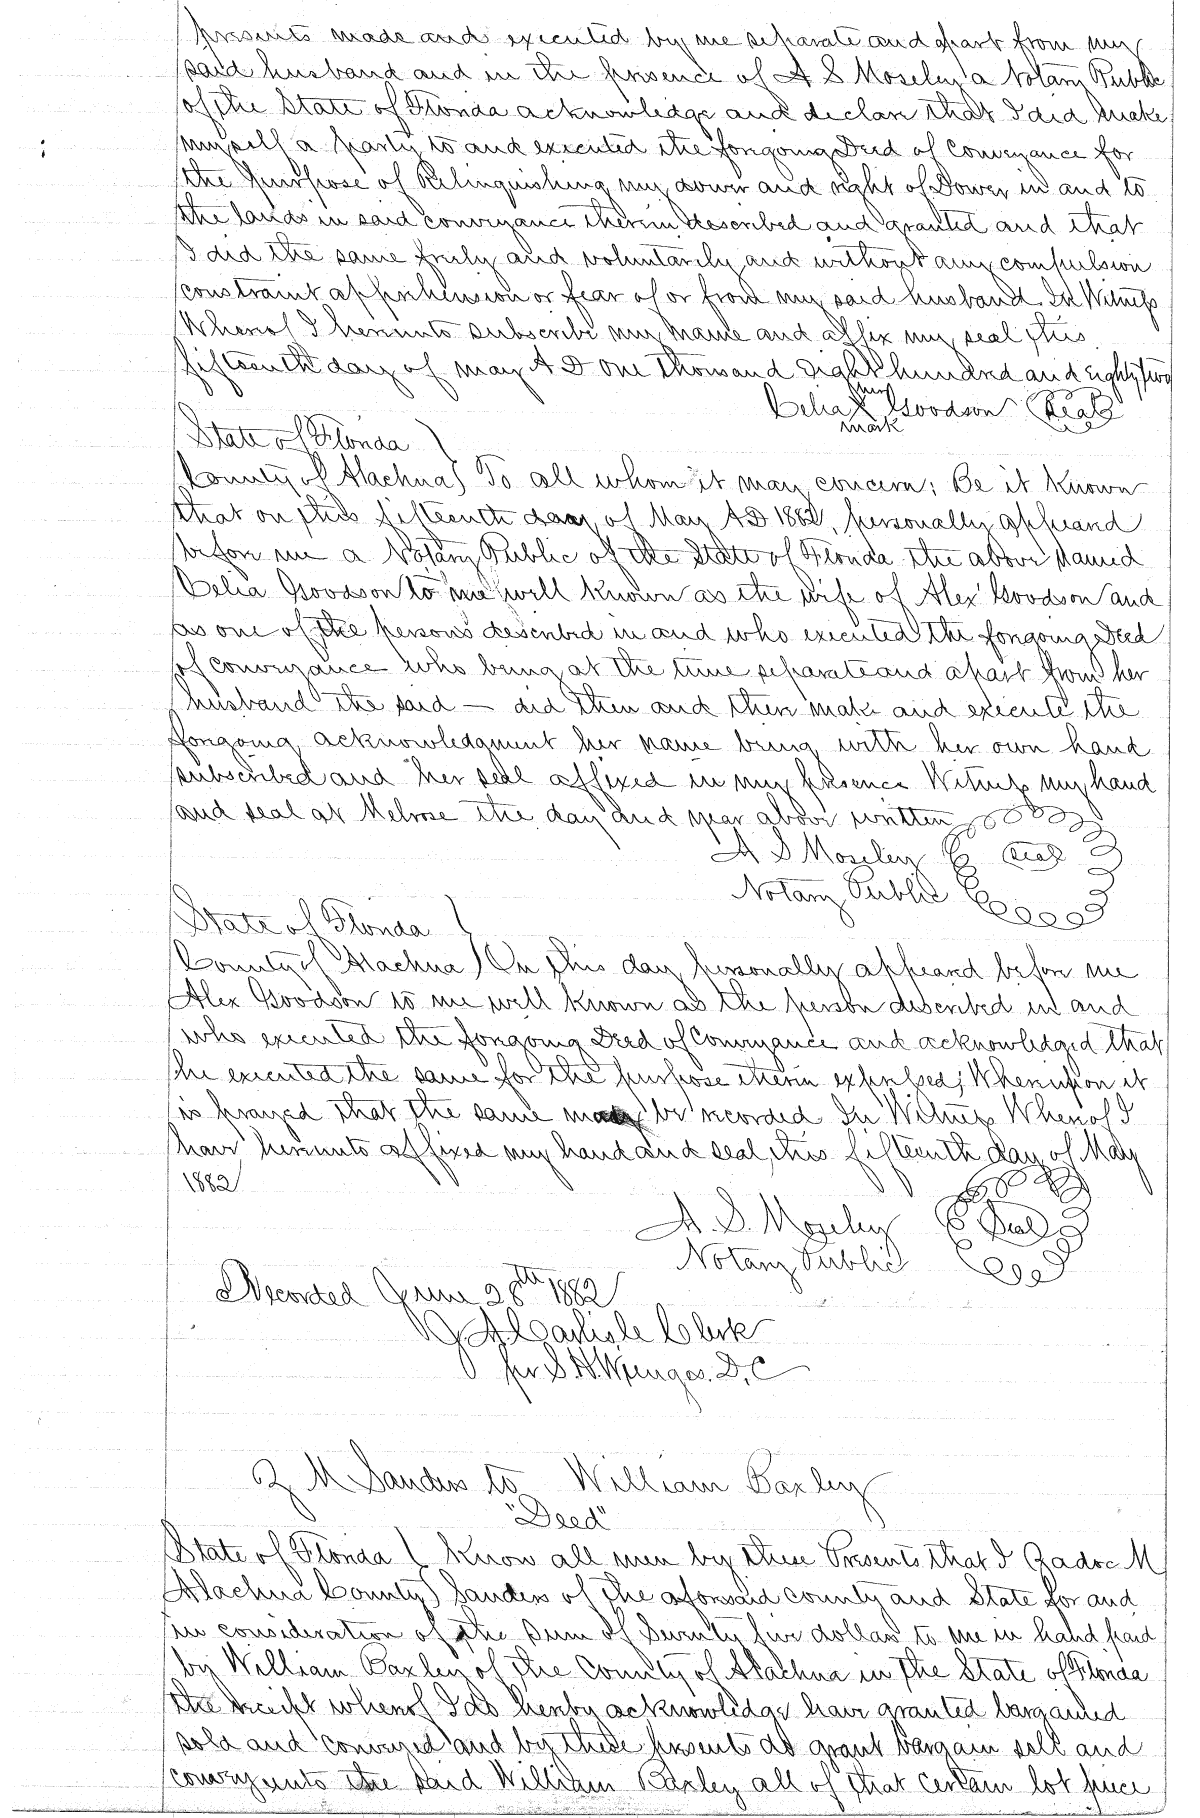 presents made and executed by me separate and apart from my
said husband and in the presence of A S Moseley a Notary Public
of the State of Florida acknowledge and declare that I did make
myself a party to and executed the foregoing Deed of Conveyance for
the Purpose of Relinquishing my dower and right of Dower in and to
the lands in said conveyance therein described and granted and that
I did the same freely and voluntarily and without any compulsion
constraint apprehension or fear of or from my said husband In Witness
Whereof I hereunto subscribe my name and affix my seal this
fifteenth day of may A D One thousand Eight hundred and eighty two
her
Celia X Goodson Seal
mark
State of Florida )
County of Alachua ) To all whom it may concern; Be it Known
that on this fifteenth day of May A D 1882, personally appeared
before me a Notary Public of the State of Florida the above named
Celia Goodson to me well known as the wife of Alex Goodson and
as one of the persons described in and who executed the foregoing Deed
of conveyance who being at the time separate and apart from her
husband the said — did then and there make and execute the
foregoing acknowledgment her name being with her own hand
subscribed and her seal affixed in my presence Witness my hand
and seal at Melrose the day and year above written
A S Moseley Seal
Notary Public
State of Florida )
County of Alachua ) On this day personally appeared before me
Alex Goodson to me well known as the person described in and
who executed the foregoing Deed of Conveyance and acknowledged that
he executed the same for the purpose therein expressed; Whereupon it
is prayed that the same may be recorded In Witness Whereof I
have hereunto affixed my hand and seal this fifteenth day of May
1882
A. S. Moseley Seal
Notary Public
Recorded June 28th 1882
J A Carlisle Clerk
per S. H. D, C
Z M Sanders to William Baxley
"Deed"
State of Florida ( Know all men by these Presents that I Zadoc M
Alachua County ) Sanders of the aforesaid county and State for and
in consideration of the sum of Seventy five dollars to me in hand paid
by William Baxley of the County of Alachua in the State of Florida
the receipt whereof I do hereby acknowledge have granted bargained
sold and conveyed and by these presents do grant bargain sell and
convey unto the said William Baxley all of that certain lot piece